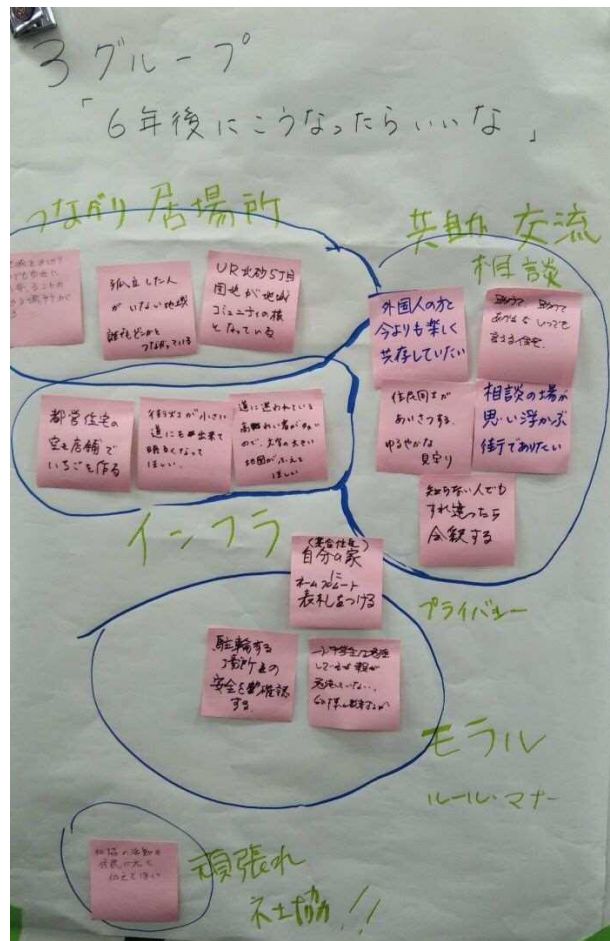 3グループ
「6年後にこうなったらいいな」
つながり 居場所
孤立した人
がいない地域
誰もがどこかと
つながっている
UR北砂5丁目
団地が地域
コミュニティの核
となっている
共助 交流
相談
外国人の方と
今よりも楽しく
共存していたい
いつでも
言える住宅
住民同士が
あいさつする。
ゆるやかな
見守り
相談の場が
思い浮かぶ
街でありたい
知らない人でも
すれ違ったら
会釈する
都営住宅の
空き店舗で
いちごを作る
街灯が小さい
道にも出来て
明るくなって
ほしい。
道に迷われている
高齢者が
ので、文字の大きい
地図がふえて
ほしい
インフラ
(集合住宅)
自分の家
に
ネームプレート
表札をつける
プライバシー
駐輪する
場所の
安全を確認
する。
モラル
ルール・マナー
社協の活動を
伝えてほしい
頑張れ
社協!!